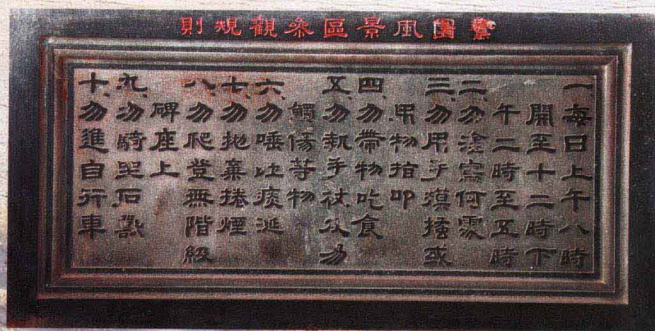 鼋園風景區参觀規則
一每日上午八時
開至十二時下
午二時至五時
二、勿塗寫何處
三、勿用手摸擦或
用物指叩
四、勿帶物吃食
五、勿執手杖以易
觸傷等物
六、勿唾吐痰涎
七、勿抛棄捲煙
八、勿爬登無階級
碑座上
九、勿騎坐石獸
十、勿進自行車